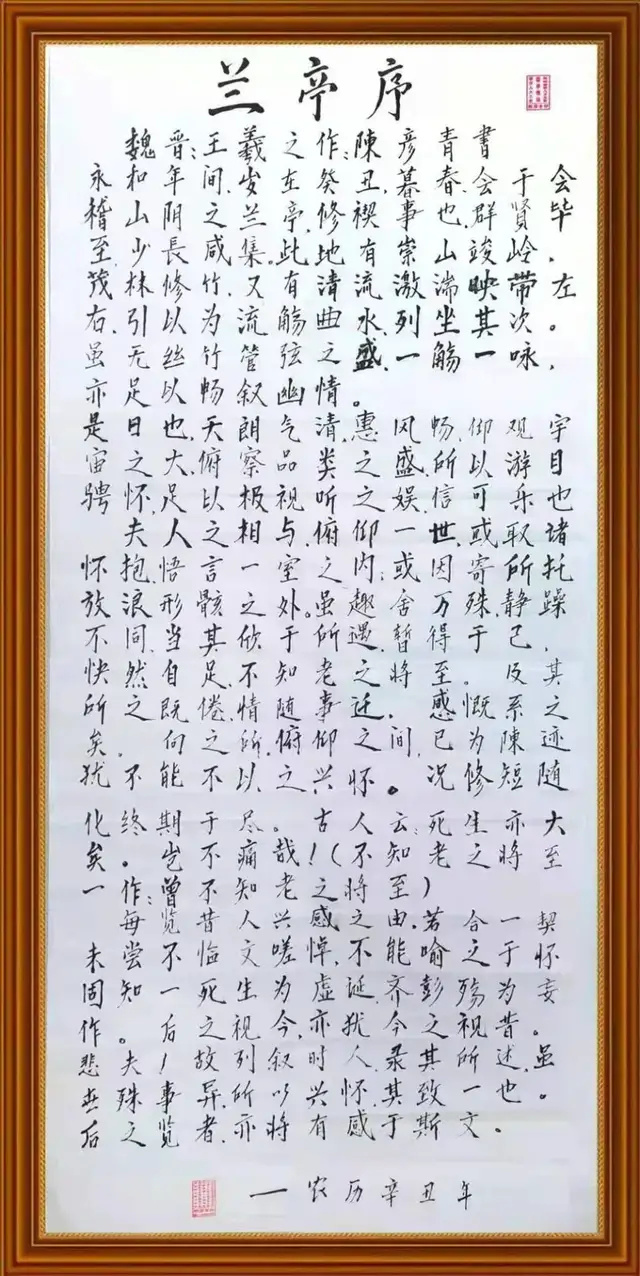 兰亭序
魏晋:王羲之作:陈彦青书
永和年间,岁在癸丑,暮春会于会
稽山阴之兰亭,修禊事也群贤毕,
至少長咸集,此地有崇山竣岭
茂林修竹又有清流激湍映带左
右,引以为流觞曲水列坐其次。
虽无丝竹管弦之盛,一觞一咏,
亦足以畅叙幽情。
是日也,天朗气清惠风畅仰观宇
宙之大俯察品类之盛所以游目
骋怀足以极视听之娱信可乐也
夫人之相与俯仰一世,或取诸
怀抱,悟言一室之内;或因寄所托
放浪形骸之外。虽趣舍万殊静躁
不同,当其欣于所遇暂得于己,
快然自足不知老之将至。及其
所之既倦情随事迁,感慨系之
矣,向之所俯仰之间已为陈迹
犹不能不以之兴怀。况修短随
化终期于尽。古人云:死生亦大
矣。岂不痛哉!(不知老之将至
一作:曾不知老之将至)
每览昔人兴感之由,若合一契
未尝不临文嗟悼,不能喻之于怀
固知一死生为虚诞齐彭殇为妄
作。后之视今,亦犹今之视昔。
悲夫!故列叙时人录其所述,虽
世殊事异,所以兴怀其致一也。
后之览者,亦将有感于斯文。
一农历辛丑年